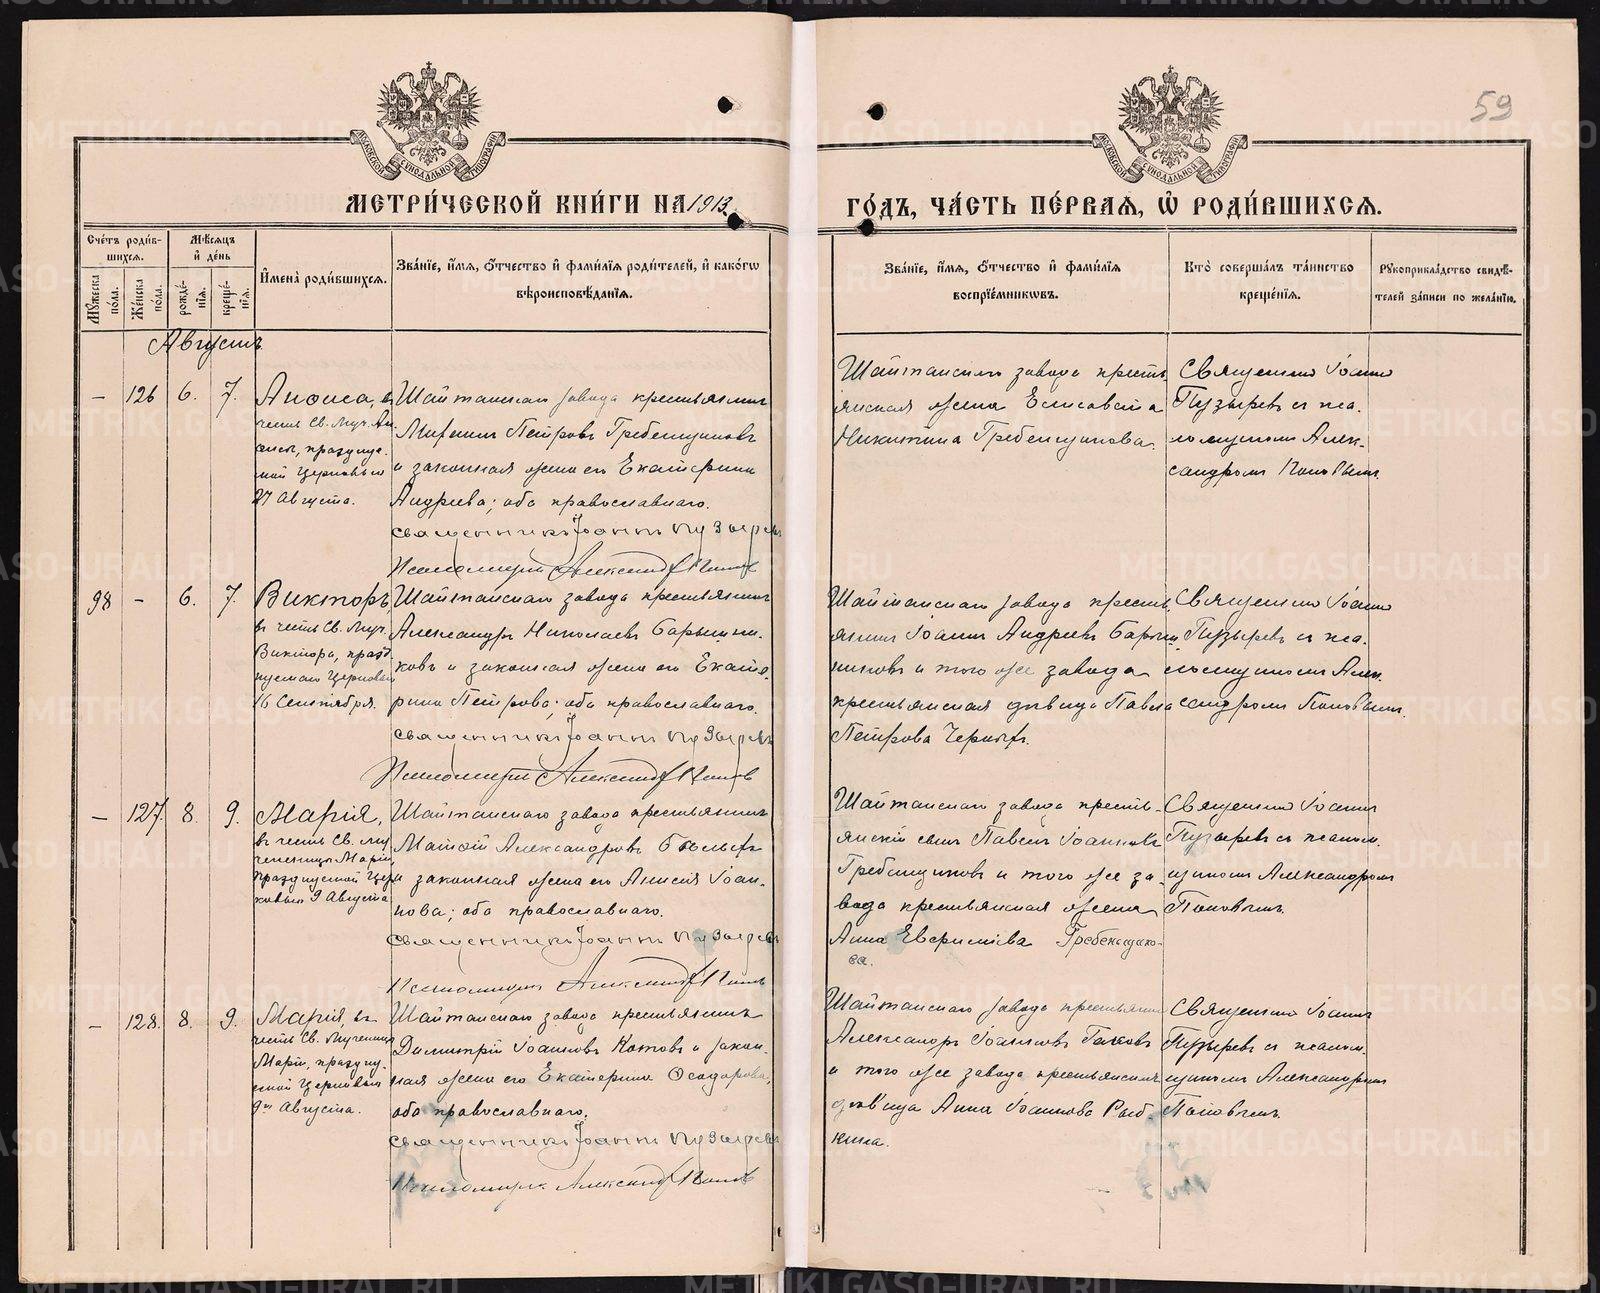 59
МЕТРИ́ЧЕСКОЙ КНИ́ГИ НА 1913
ГО́ДЪ, ЧА́СТЬ ПЕ́РВАЯ, Ѡ҆ РОДИ́ВШИХСЯ.
Сче́тъ роди́в-
шихся.
Мѣ́сяцъ
и҆ де́нь
Мꙋ́жеска по́ла.
Же́нска по́ла.
рожде́-
нїя.
креще́-
нїя.
И҆мена̀ роди́вшихся.
Зва́нїе, и҆́мя, ѻ҆́тчество и҆ фами́лїя роди́телей, и҆ како́гѡ
вѣроисповѣ́данїя.
Зва́нїе, и҆́мя, ѻ҆́тчество и҆ фами́лїя
воспрїе́мникѡвъ.
Кто̀ соверша́лъ та́инство
креще́нїя.
Рꙋкоприкла́дство свидѣ́-
телей за́писи по жела́нїю.
Августъ
– 126 6. 7.
Анѳиса, въ
честь Св. Муч. Ан-
ѳисы, празднуе-
мой Церковью
27 Августа.
Шайтанскаго завода крестьянинъ
Петровъ Гребенщиковъ
и законная жена его Екатерина
Андреева; оба православнаго.
Священникъ Іоаннъ Пузыревъ
Псаломщикъ Александръ Поповъ
Шайтанскаго завода кресть-
янская жена Елисавета
Никитина Гребенщикова.
Священникъ Іоаннъ
Пузыревъ съ пса-
ломщикомъ Алек-
сандромъ Поповымъ.
98 – 6. 7.
Викторъ,
въ честь Св. Муч.
Виктора, празд-
нуемаго Церковью
16 Сентября.
Шайтанскаго завода крестьянинъ
Александръ Николаевъ Барышни-
ковъ и законная жена его Екате-
рина Петрова; оба православнаго.
Священникъ Іоаннъ Пузыревъ
Псаломщикъ Александръ Поповъ
Шайтанскаго завода кресть-
янинъ Іоаннъ Андреевъ Барыш-
никовъ и того же завода
крестьянская дѣвица Павла
Петрова Черныхъ.
Священникъ Іоаннъ
Пузыревъ съ пса-
ломщикомъ Алек-
сандромъ Поповымъ.
– 127. 8. 9.
Марія,
въ честь Св. Му-
ченицы Маріи,
празднуемой Цер-
ковью 9 Августа
Шайтанскаго завода крестьянинъ
Матѳій Александровъ Бѣлыхъ
и законная жена его Анисія Іоан-
нова; оба православнаго.
Священникъ Іоаннъ Пузыревъ
Псаломщикъ Александръ Поповъ
Шайтанскаго завода кресть-
янскій сынъ Павелъ Іоанновъ
Гребенщиковъ и того же за-
вода крестьянская жена
Анна Гребенщико-
ва.
Священникъ Іоаннъ
Пузыревъ съ псалом-
щикомъ Александромъ
Поповымъ.
– 128. 8. 9.
Марія, въ
честь Св. Мученицы
Маріи, праздну-
емой Церковью
9го Августа.
Шайтанскаго завода крестьянинъ
Димитрій Іоанновъ Котовъ и закон-
ная жена его Екатерина Ѳеодорова;
оба православнаго.
Священникъ Іоаннъ Пузыревъ
Псаломщикъ Александръ Поповъ
Шайтанскаго завода крестьянинъ
Александръ Іоанновъ
и того же завода крестьянская
дѣвица Анна Іоаннова Рыб-
кина.
Священникъ Іоаннъ
Пузыревъ съ псалом-
щикомъ Александромъ
Поповымъ.
METRIKI.GASO-URAL.RU